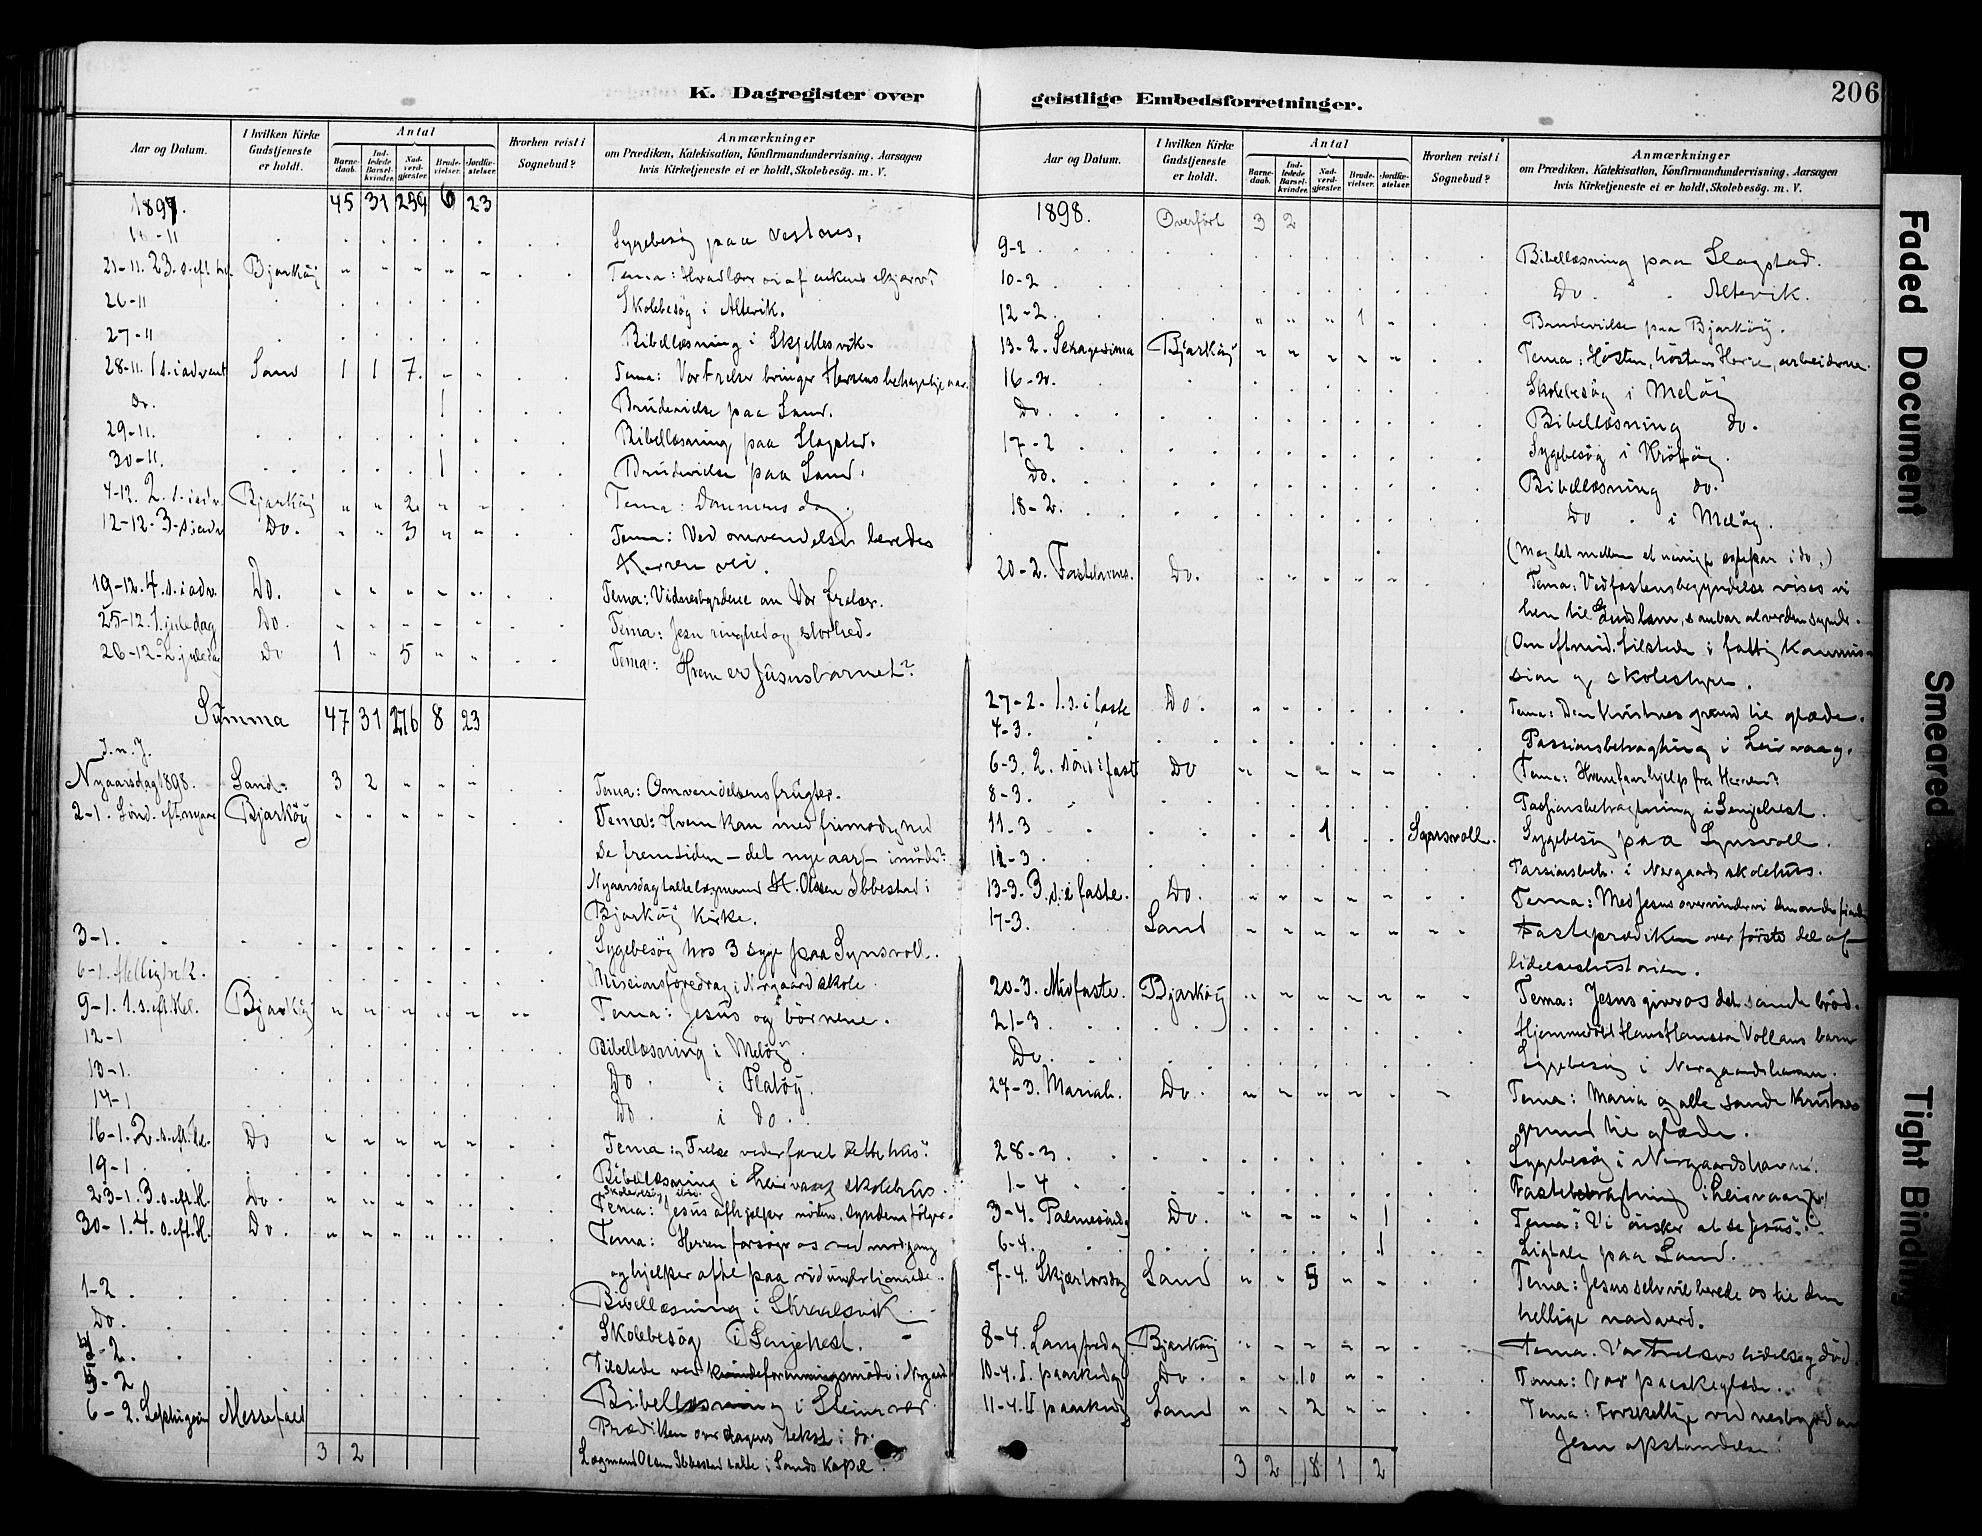 206
K. Dagregister over geistlige Embedsforretninger.
Aar og Datum.
I hvilken Kirke Gudstjeneste er holdt.
Antal
Barnedaab.
Indledede Barselkvinder.
Nadverdgjester.
Brudevielser.
Jordfæstelser.
Hvorhen reist i Sognebud?
Anmærkninger
om Prædiken, Katekisation, Konfirmandundervisning, Aarsagen
hvis Kirketjeneste ei er holdt, Skolebesög, m. V.
1897. 45 31 259 6 23
18-11 Sygebesög paa
21-11. 23. s. eft. Bjarköy
26-11 Skolebesög i Altevik.
27-11 Bibellæsning i Skjellesvik.
28-11. 1 s. i advent Sand 1 1 7. Tema: Vor Frelser bringer Herrens behagelige aar.
Do. 1 Brudevielse paa Sand.
29-11. Bibellæsning paa Slagstad.
30-11. 1 Brudevielse paa Sand.
4-12. 2. s. i adv. Bjarköy 2 Tema: Dommens dag.
12-12. 3. s. i adv Do. 3 Tema: Ved omvendelse beredes
Herren vei.
19-12. 4. s. i adv. Do. Tema: Vidnesbyrdene om Vor frelser.
25-12. 1. juledag Do. Tema: Jesu ringhed og storhed.
26-12. 2. juledag Do 1 5 Tema: Hvem er Jesusbarnet?
Summa 47 31 276 8 23
J. n. J.
Nyaarsdag 1898. Sand. 3 2 Tema: Omvendelsens frugter.
2-1. Sönd. eft. nyaar Bjarköy Tema: Hvem kan med frimodighed
se fremtiden - det nye aar - imöde?
Nyaarsdag talte lægmand H. Olsen Ibbestad i
Bjarköy Kirke.
3-1. Sygebesög hos 3 syge paa Synsvoll.
6-1. Helligtrek. Missionsforedrag i Nergaard skole.
9-1. 1. s. eft. Hel. Bjarköy Tema: Jesus og börnene.
12-1 Bibellæsning i Melöy.
13-1. Do. i Flatöy.
14-1 Do. i do.
16-1. 2. s. eft. Hel. Do Tema: Frelse vederfaret dette hus.
19-1 Bibellæsning i Leirvaag skolehus.
Skolebesög
23-1. 3. s. eft. H. Do. Tema: Jesus afhjelper nöden, syndens fölger.
30-1. 4. s. eft. H. Do. Tema: Herren forsöger os med modgang
og hjelper ofte paa vidunderlig maade.
1-2 Bibellæsning i
Do. Skolebesög i Senjehest.
4-2. Tilstede ved
5-2 Bibellæsning i Steinavær
6-2. Messefald Prædiken over dagens tekst i do.
3 2 Lægmand Olsen Ibbestad talte i Sands Kapel.
Aar og Datum.
I hvilken Kirke Gudstjeneste er holdt.
Antal
Barnedaab.
Indledede Barselkvinder.
Nadverdgjester.
Brudevielser.
Jordfæstelser.
Hvorhen reist i Sognebud?
Anmærkninger
om Prædiken, Katekisation, Konfirmandundervisning, Aarsagen
hvis Kirketjeneste ei er holdt, Skolebesög, m. V.
1898. Overfört 3 2
9-2 Bibellæsning paa Slagstad.
10-2 Do. Altevik.
12-2. 1 Brudevielse paa Bjarköy.
13-2. Sexagesima Bjarköy Tema: Hösten, höstens Herre, arbeiderne.
16-2. Skolebesög i Melöy
Do. Bibellæsning do.
17-2 Sygebesög i Krötöy.
Do. Bibellæsning do.
18-2. Do i Melöy.
(Mæglet mellem et uenige ægtepar i do.)
20-2. Fastelavens. Do. Tema: Ved fastens begyndelse vises vi
hen til Guds lam, som bar al verdens synder.
(Om efterm. tilstede i fattig kommis-
sion og skolestyre.
27-2. 1. s. i faste Do. Tema: Den Kristnes grund til glæde.
4-3. Passionsbetragtning i Leirvaag.
6-3. 2. sönd i faste Do Tema: Hvem faar hjelp fra Herren?
8-3. Passionsbetragtning i Senjehest.
11-3 1 Synsvoll. Sygebesög paa Synsvoll.
11-3. Passionsbetr. i Nergaards skolehus.
13-3. 3. s. i faste. Do. Tema: Med Jesus overvinder vi
17-3. Sand Fasteprædiken over förste del af
lidelseshistorien.
20-3. Midfaste. Bjarköy Tema: Jesus giver os det sande bröd.
21-3. Hjemmedöbt Hans Hansson Vollans barn
Do. Sygebesög i Nergaardshavn.
27-3. Mariab. Do. Tema: Maria og alle sande Kristnes
grund til glæde.
28-3. Sygebesög i Nergaardshavn.
1-4 Fastebetragtning i Leirvaag.
3-4. Palmesönd. Do. 1 Tema: "Vi önsker at se Jesus".
6-4. 1 Ligtale paa Sand.
7-4. Skjærtorsdag Sand 5 Tema: Jesus selv vil berede os til den
hellige nadverd.
8-4. Langfredag Bjarköy Tema. Vor Frelsers lidelse og död.
10-4. I. paaskedag Do. 10 Tema: Vor paaskeglæde.
11-4. II paaskedag Sand 2 Tema: Forskellige vidnesbyrd om
Jesu opstandelse.
3 2 18 1 2
Faded Document
Smeared
Tight Binding